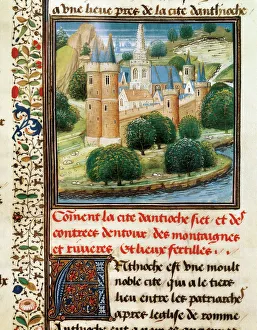 a vne lieue pres de la cite danthioche
Coment la cite dantioche siet et des
contrees dentour des montaignes
et riuieres et lieux fertilles
ANthioche est vne moult
noble cite qui a le tiers
lieu entre les patriarches
apres leglise de romme